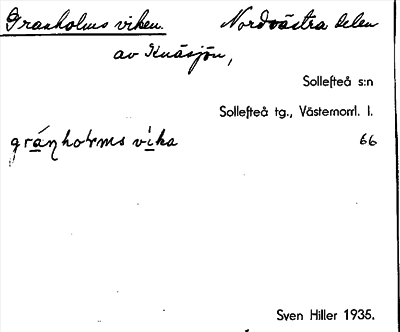 Granholms viken. Nordvästra delen
av Knäsjön,
Sollefteå s:n
Sollefteå tg., Västernorrl. l.
grán̠hoƚms vi̠ka 66
Sven Hiller 1935.